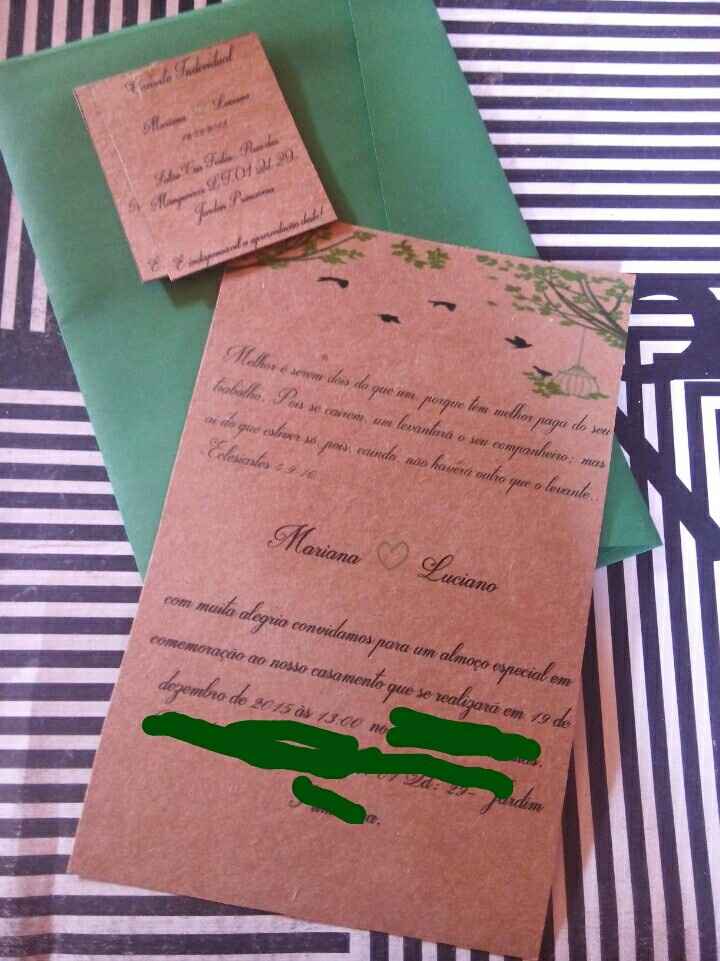 Convite Individual
Mariana Luciano
Mangueiras LT.01 Qd. 29.
Jardim Primavera
E. E indispensável a apresentação deste!
Melhor é serem dois do que um, porque têm melhor paga do seu
trabalho. Pois se caírem, um levantará o seu companheiro; mas
ai do que estiver só, pois, caindo, não haverá outro que o levante..
Eclesiastes 4.9-10
Mariana Luciano
com muita alegria convidamos para um almoço especial em
comemoração ao nosso casamento que se realizará em 19 de
dezembro de 2015 às 13:00 no
Qd: 29- Jardim